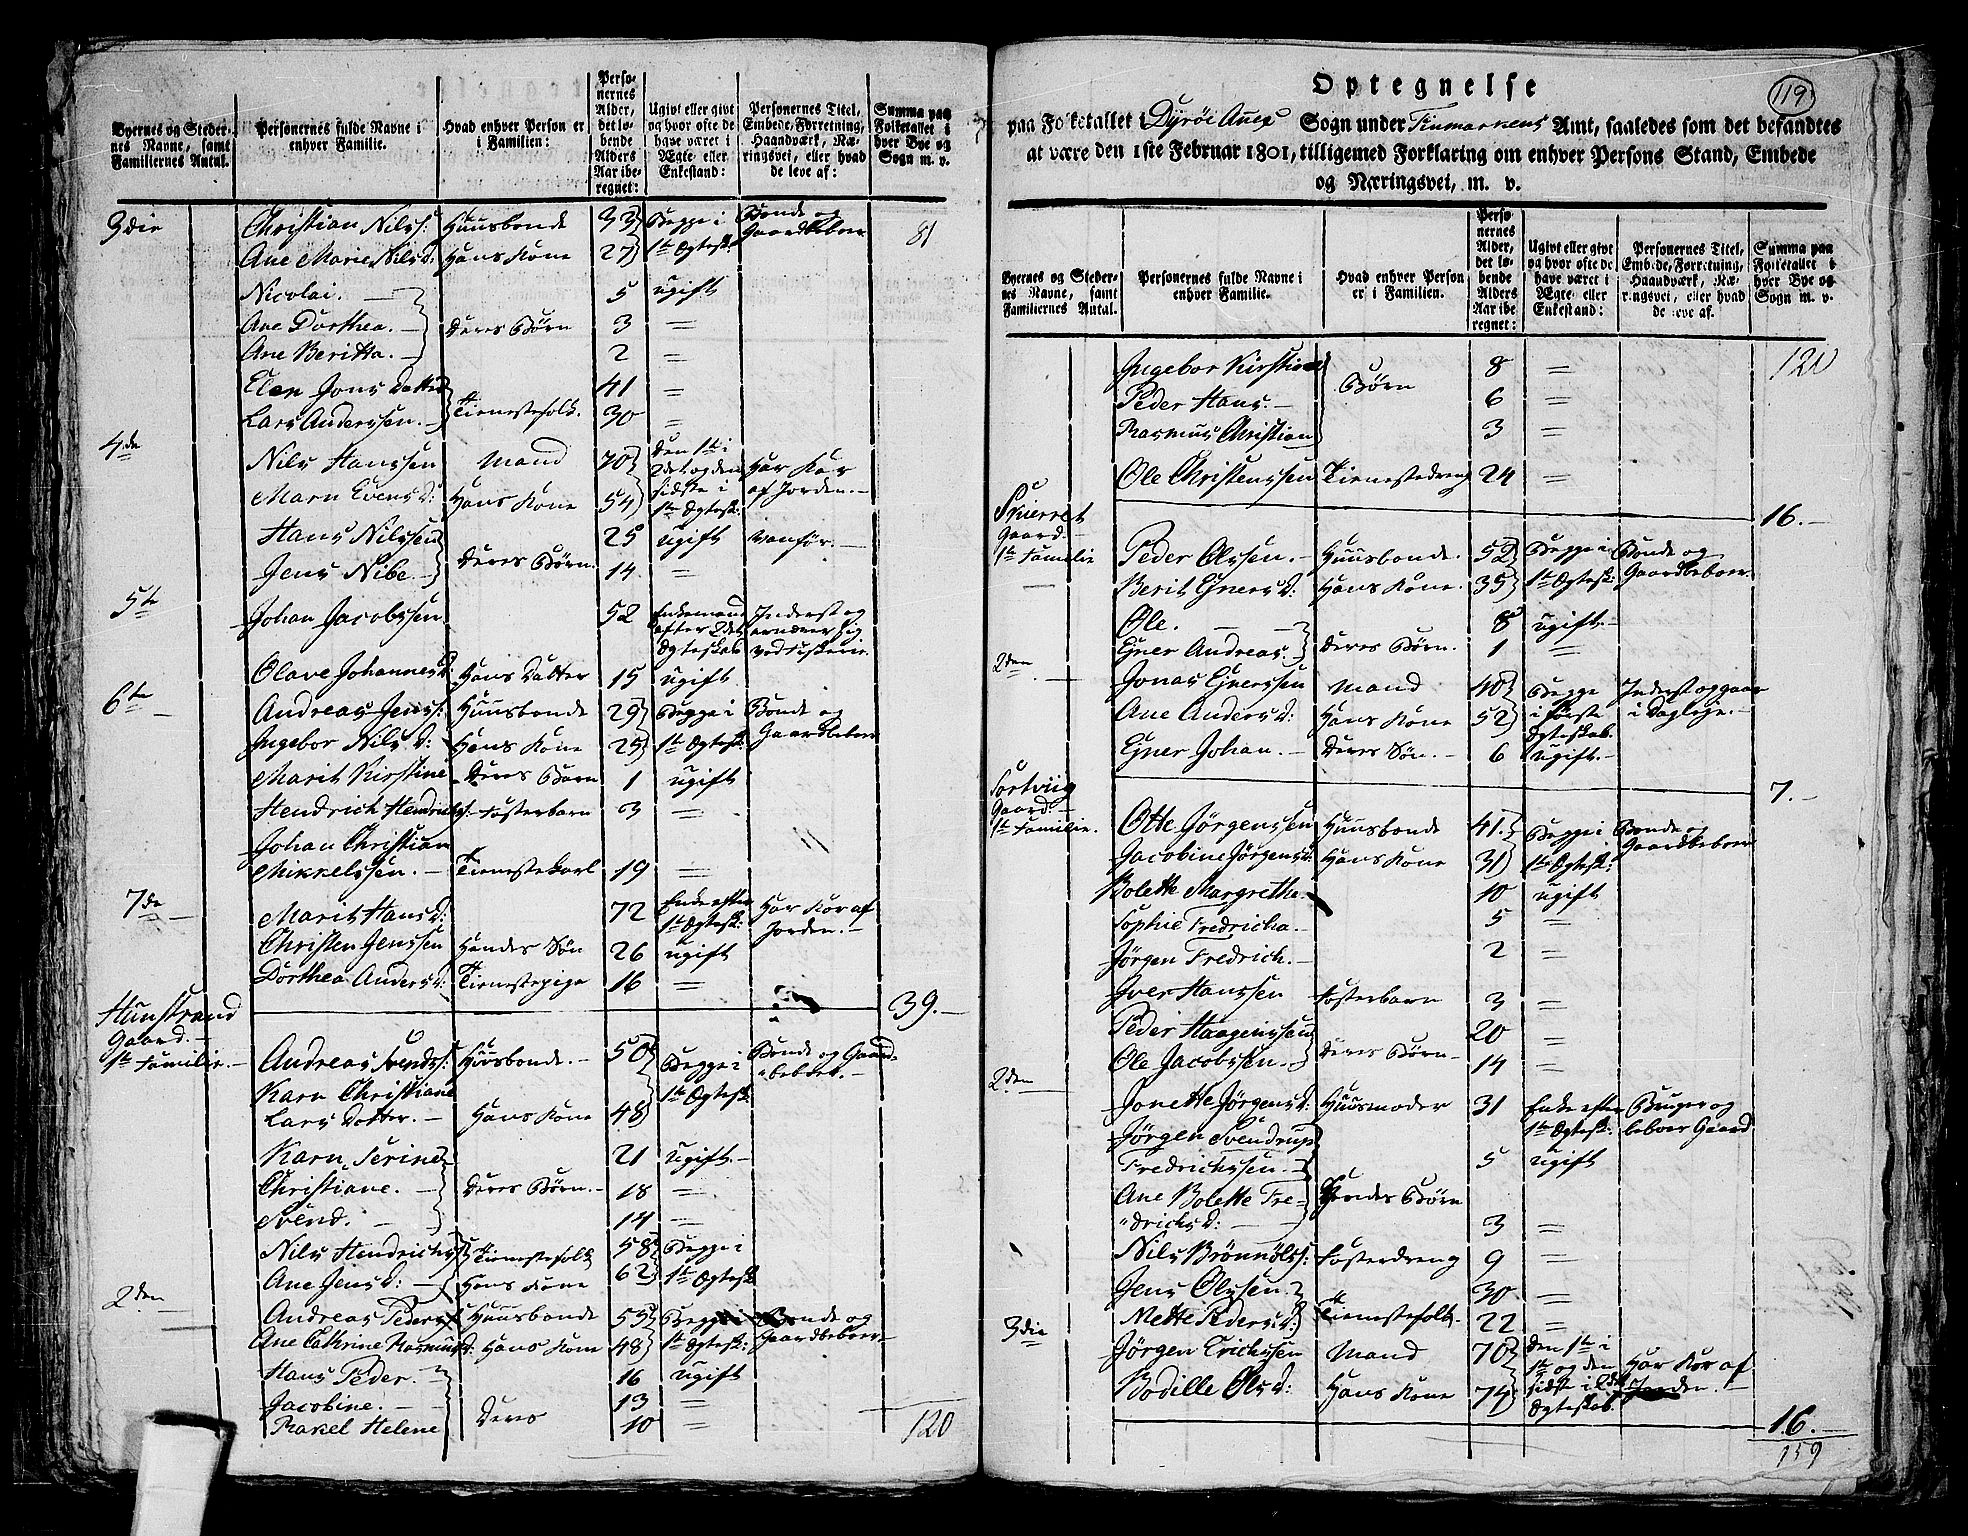 Byernes og Steder-
nes Navne, samt
Familiernes Antal.
Personernes fulde Navne i
enhver Familie.
Hvad enhver Person er
i Familien:
Perso-
nernes
Alder,
det lø-
bende
Alders
Aar ibe-
regnet:
Ugivt eller givt
og hvor ofte de
have været i
Ægte- eller
Enkestand:
Personernes Titel,
Embede, Forretning,
Haandværk, Næ-
ringsvei, eller hvad
de leve af:
Summa paa
Folketallet i
hver Bye og
Sogn m. v.
3die Christian Nilss: Huusbonde 33 Begge i Bonde og 81
Ane Marie Nilsd: Hans Kone 27 1te Ægtesk: Gaardbeboer
Nicolai. — 5 ugift
Ane Dorthea. — Deres Børn 3 =
Ane Beritta. — 2 =
Elen Jons Datter 41 =
Lars Anderssen. — Tienestefolk. 30 =
4de Nils Hanssen Mand 70 Den 1te i
2det og den Har Kaar
Marn Evensd: Hans Kone 54 sidste i af Jorden. —
1te Ægtesk:
Hans Nilssen 25 ugift vanfør. —
Jens Nibe. — Deres Børn. 14 =
5te Johan Jacobssen 52 Enkemand Inderst og
efter 2det ernærer sig
Ægteskab ved Fiskerie.
Olave Johannesd: Hans Datter 15 ugift
6te — Andreas Jenss: Huusbonde 29 Begge i Bonde og
Ingebor Nilsd: Hans Kone 25 1te Ægtesk: Gaardbeboer
Marit Kirstine Deres Barn 1 ugift
Hendrich Hendrichs: Fosterbarn 3 =
Johan Christian
Mikkelssen. — Tienestekarl 19 =
7de — Marit Hansd: 72 Enke efter Har Kaar af
1te Ægtesk: Jorden. —
Christen Jenssen Hendes Søn 26 ugift
Dorthea Andersd: Tienestepige 16 =
Hunstrand 39. —
Gaard. —
1te Familie. — Andreas Svends: Huusbonde. — 50 Begge i Bonde og Gaard-
1te Ægtesk: beboer. —
Karn Christiane
Lars Datter. — Hans Kone 48
Karn Serine 21 ugift. —
Christiane. — Deres Børn. — 18 =
Svend. — 14 =
Nils Hendrichs: Tienestefolk 58 Begge i
Ane Jensd: — Hans Kone 62 1te Ægtesk:
2den Andreas Peders: Huusbonde 55 Begge i Bonde og
Ane Cathrine Rasmusd: Hans Kone 48 1te Ægtesk: Gaardbeboer
Hans Peder. — 16 ugift
Jacobine. — 13 =
Rakel Helene Deres 10 =
120
119
Optegnelse
paa Folketallet i Dyröe Anex Sogn under Finmarkens Amt, saaledes som det befandtes
at være den 1ste Februar 1801, tilligemed Forklaring om enhver Persons Stand, Embede
og Næringsvei, m. v.
Byernes og Steder-
nes Navne, samt
Familiernes Antal.
Personernes fulde Navne i
enhver Familie.
Hvad enhver Person
er i Familien.
Perso-
nernes
Alder,
det lø-
bende
Alders
Aar ibe-
regnet:
Ugivt eller givt
og hvor ofte de
have været i
Ægte- eller
Enkestand:
Personernes Titel,
Embede, Forretning,
Haandværk, Næ-
ringsvei, eller hvad
de leve af.
Summa paa
Folketallet i
hver Bye og
Sogn m. v.
Ingebor Kirstine 8 = 120
Peder Hans. — Børn 6 =
Rasmus Christian 3 =
Ole Christenssen Tienestedreng 24 =
Skierret 16. —
Gaard. —
1te Familie Peder Olssen. — Huusbonde. 52 Begge i Bonde og
Berit Ejnersd: Hans Kone. 35 1te Ægtesk: Gaardbeboer.
Ole. — — 8 ugift. —
Ejner Andreas. Deres Børn. 1 =
2den Jonas Ejnerssen Mand 40 Begge Inderst og gaar
Ane Andersd: Hans Kone 52 i første i Dagleje. —
Ægteskab.
Ejner Johan. — Deres Søn. — 6 ugift. —
Sortviig 7. —
Gaard. —
1te Familie. Otte Jørgenssen Huusbonde 41. Begge i Bonde og
Jacobine Jørgensd: Hans Kone 31 1te Ægtesk: Gaardbeboer
Bolette Margrethe. 10 ugift
Sophie Fredricha. — 5 =
Jørgen Fredrich. — 2 =
Iver Hanssen Fosterbarn 3 =
Peder Haagenssen 20 =
Ole Jacobssen. — Deres Børn 14 =
2den Jonette Jørgensd: Huusmoder 31 Enke efter Bruger og
1te Ægtesk: beboer Gaard
Jørgen Svendrup
Fredrichssen. — 5 ugift
Ane Bolette Fre- Hendes Børn
drichsd: — 3 =
Nils Brönnöls: Fosterdreng 9 =
Jens Olssen. 30 =
Mette Pedersd: Tienestefolk. 22 =
3die Jørgen Erichssen Mand 70 Den 1te i
1te og den Har Kaar af
Bodille Olsd: Hans Kone 74 sidste i 2det Jorden. —
Ægteskab.
16. —
159